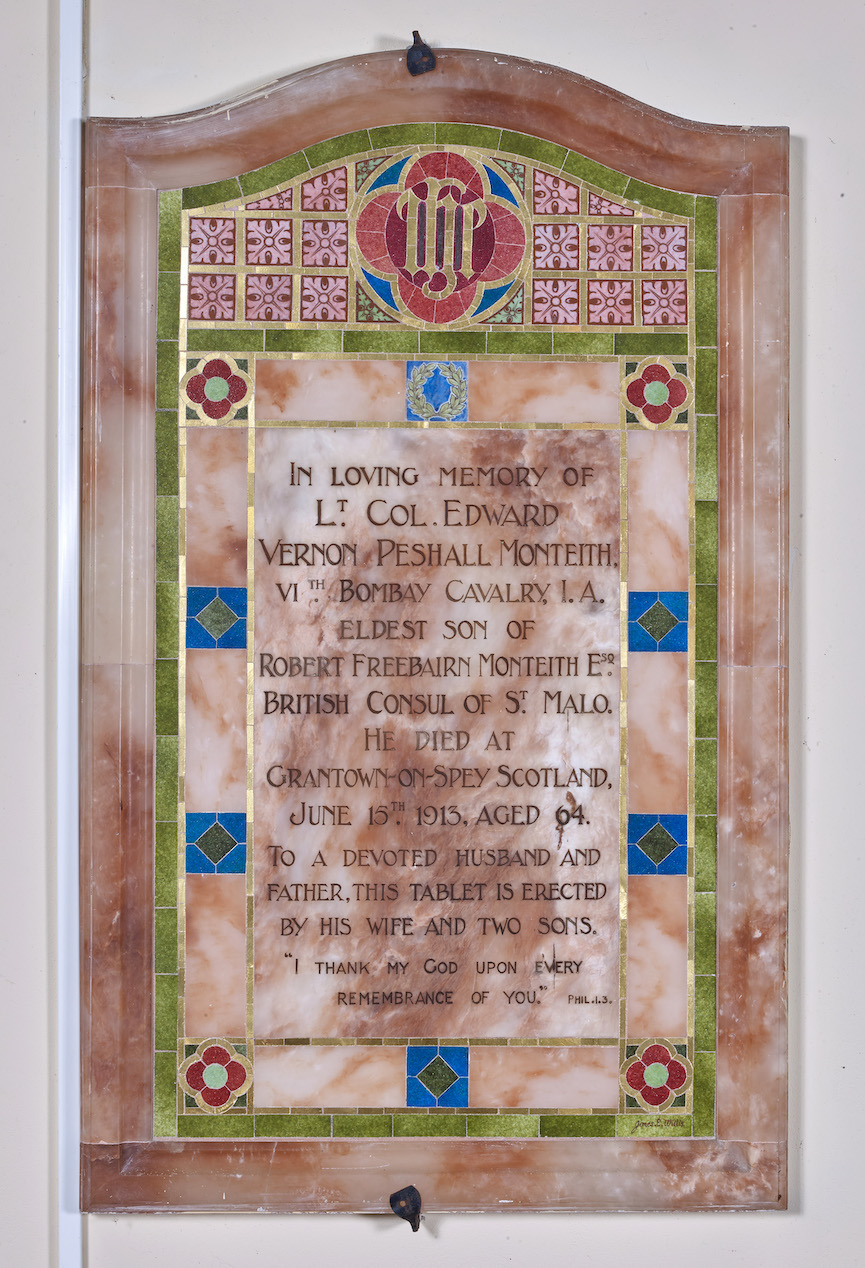 ihs
IN LOVING MEMORY OF
LT. COL. EDWARD
VERNON PESHALL MONTEITH,
VITH. BOMBAY CAVALRY, I.A.
ELDEST SON OF
ROBERT FREEBAIRN MONTEITH ESQ.
BRITISH CONSUL OF ST. MALO.
HE DIED AT
GRANTOWN-ON-SPEY SCOTLAND,
JUNE 15TH. 1913, AGED 64.
TO A DEVOTED HUSBAND AND
FATHER, THIS TABLET IS ERECTED
BY HIS WIFE AND TWO SONS.
"I THANK MY GOD UPON EVERY
REMEMBRANCE OF YOU." PHIL.I.3.
James E. Willis